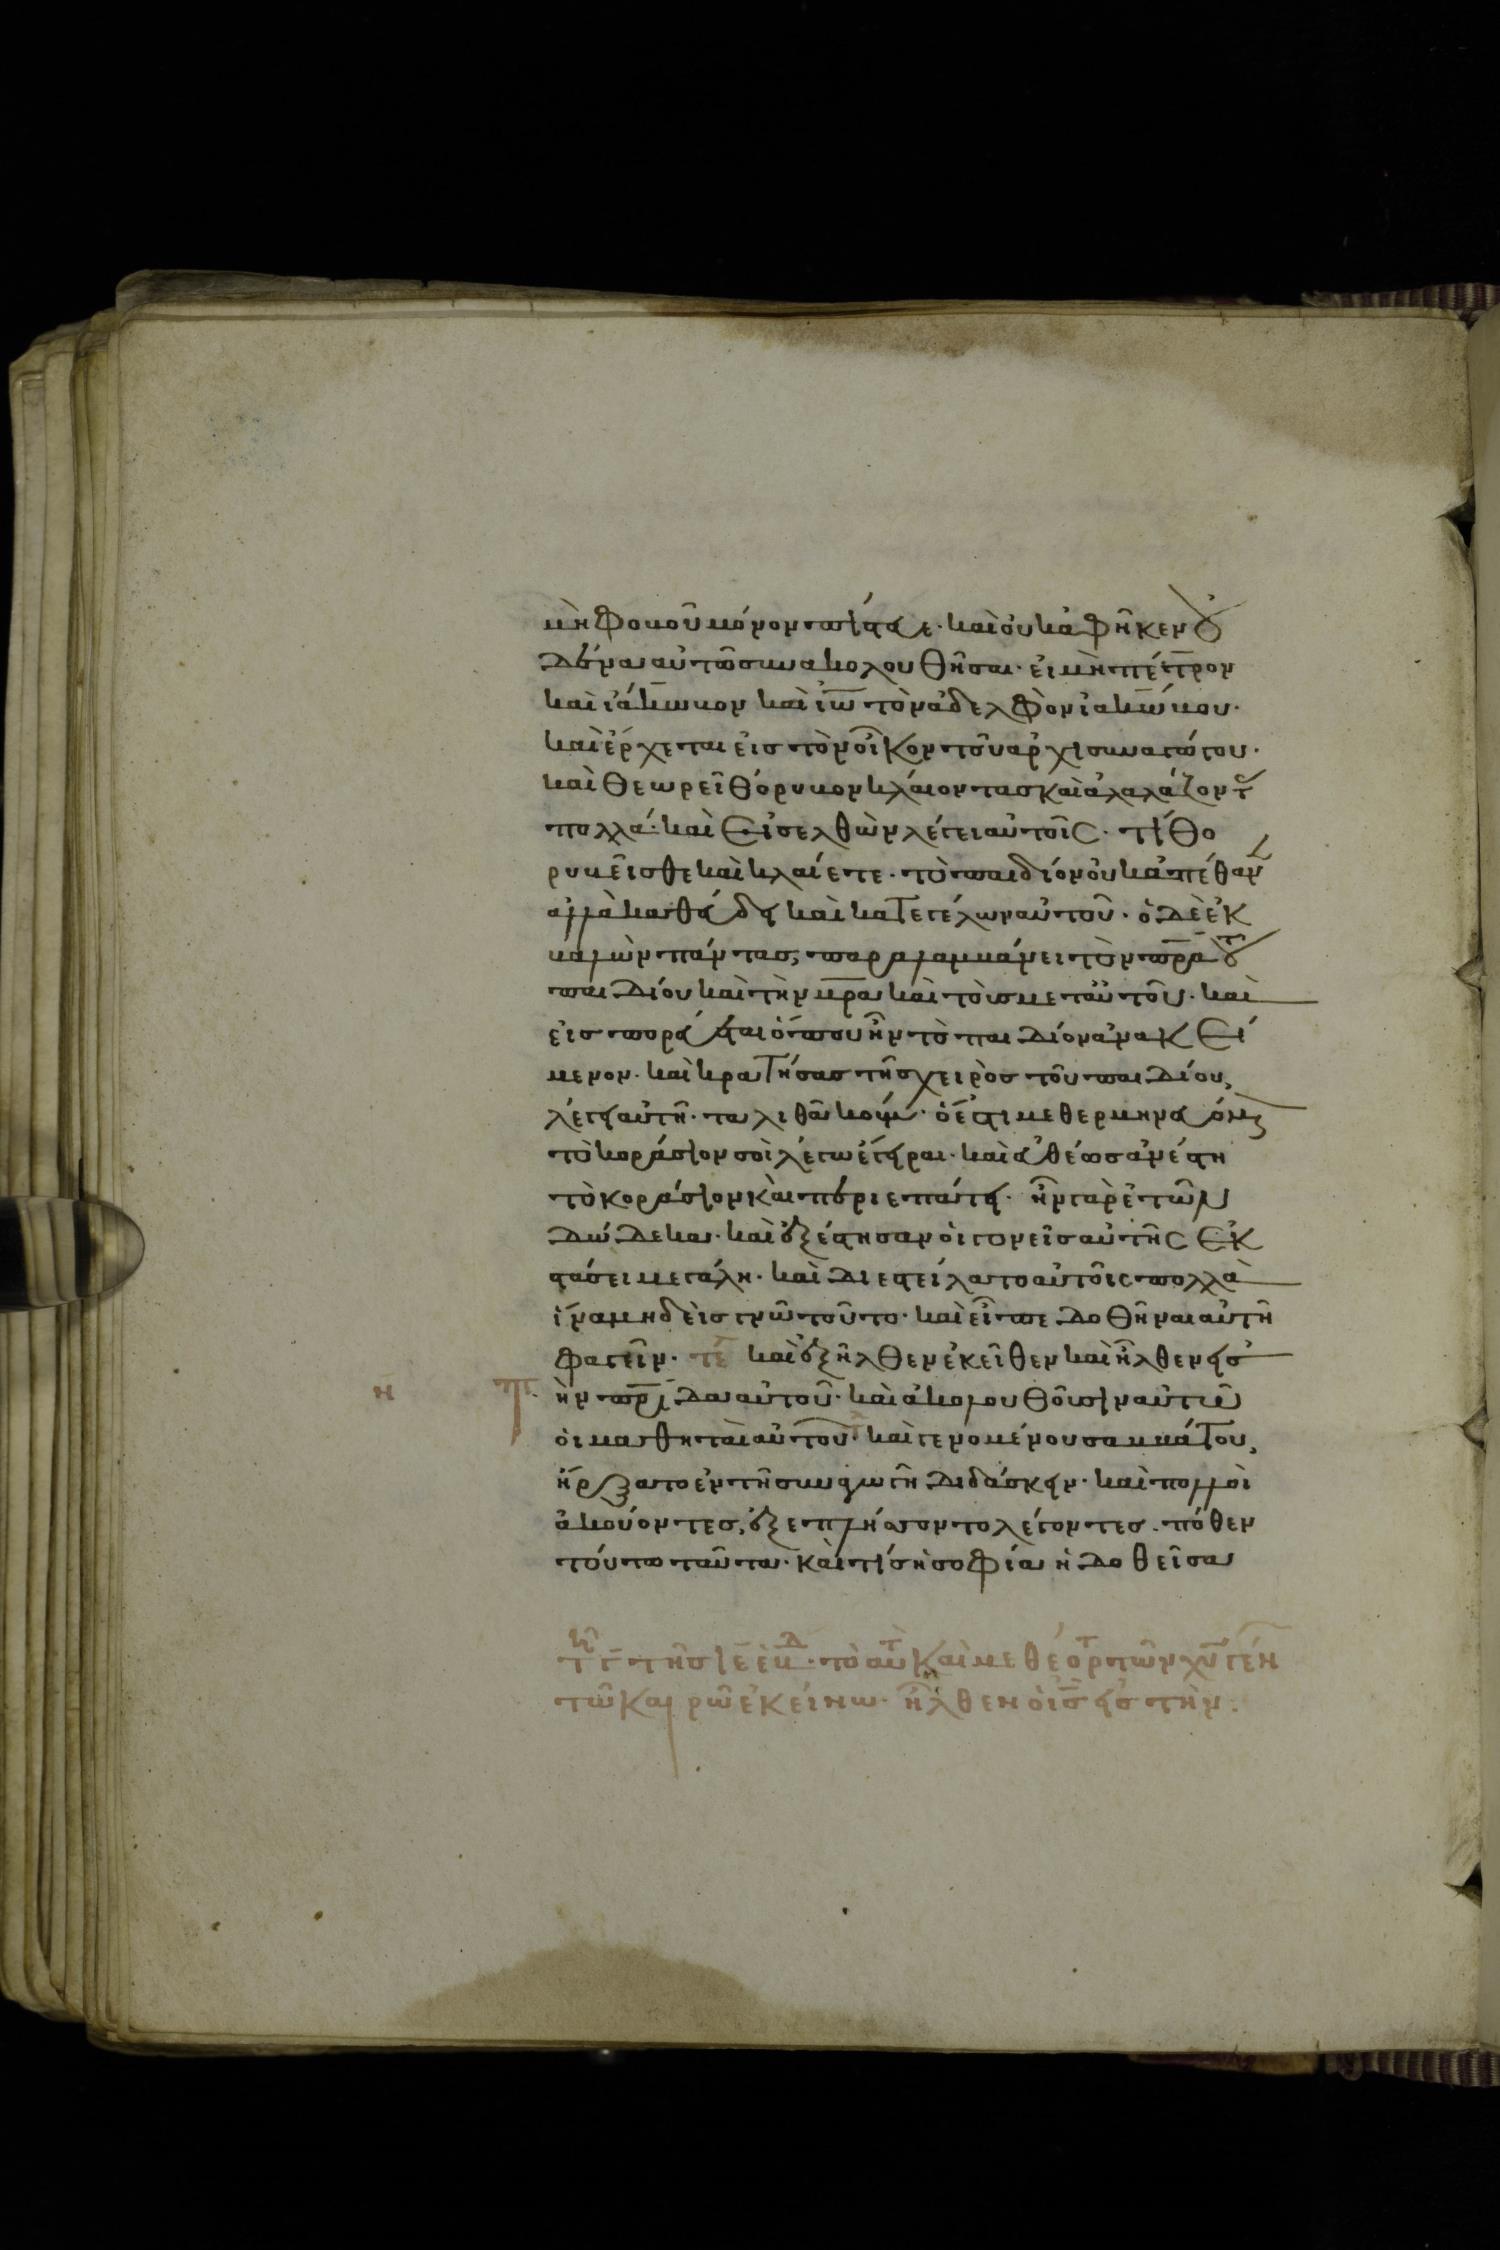 μὴ φοβοῦ μόνον πίστευε· καὶ οὐκ ἀφῆκεν οὐ
δένα αὐτῶ συνακολουθῆσαι· εἰ μὴ πέτρον
καὶ ἰάκωβον καὶ ἰω τὸν ἀδελφὸν ἰακώβου·
καὶ ἔρχεται εἰς τὸν οἶκον τοῦ ἀρχισυναγώγου·
καὶ θεωρεῖ θόρυβον κλαίοντας καὶ ἀλαλάζοντ
πολλά· καὶ εἰσελθὼν λέγει αὐτοῖς· τί θο
ρυβεῖσθε καὶ κλαίετε· τὸ παιδίον οὐκ ἀπέθαν
ἀλλὰ καθεύδει καὶ κατεγέλων αὐτοῦ· ὁ δὲ ἐκ
βαλὼν πάντας, παραλαμβάνει τὸν πρα τοῦ
παιδίου καὶ τὴν μρα καὶ τοὺς μετ αὐτοῦ· καὶ
εἰσπορεύεται ὅπου ἦν τὸ παιδίον ἀνακεί
μενον· καὶ κρατήσας τῆς χειρὸς τοῦ παιδίου,
λέγει αὐτῆ· ταλιθὰ κούμι· ὅ ἐστι μεθερμηνευόμ
τὸ κοράσιον σοὶ λέγω ἔγειραι· καὶ εὐθέως ἀνέστη
τὸ κοράσιον καὶ περιεπάτει· ἦν γὰρ ἐτῶν
δώδεκα· καὶ ἐξέστησαν οἱ γονεῖς αὐτῆς ἐκ
στάσει μεγάλη· καὶ διεστείλατο αὐτοῖς πολλὰ
ἵνα μηδεὶς γνῶ τοῦτο· καὶ εἶπε δοθῆναι αὐτῆ
φαγεῖν· τε καὶ ἐξῆλθεν ἐκεῖθεν καὶ ἦλθεν εἰς
τὴν πρίδα αὐτοῦ· καὶ ἀκολουθοῦσιν αὐτῶ
οἱ μαθηταὶ αὐτοῦ· καὶ γενομένου σαββάτου,
ἤρξατο ἐν τῆ συναγωγῆ διδάσκειν· καὶ πολλοὶ
ἀκούοντες, ἐξεπλήσσοντο λέγοντες· πόθεν
τούτω ταῦτα· καὶ τίς ἡ σοφία ἡ δοθεῖσα
τῶ καιρῶ ἐκείνω· ἦλθεν ὁ ις εἰς τὴν.